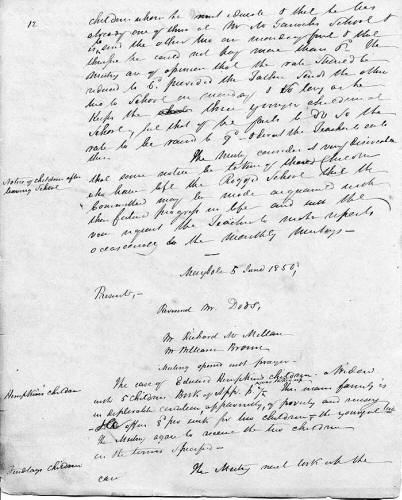 12
children whom he must educate & that he has
already one of them at Mr Mc School &
and the other two on monday first & that
he could not pay more than The
Meeting are of opinion that the rate should be
reduced to provided the Father sends the other
two to School on monday & as long as he
keeps the three younger children at
School, but that if he fails to do so the
rate to be raised to 9d & direct the Teacher to
this.
Notice of children after
leaving School
The Meeting consider it very desirable
that some notice be taken of those children
who have left the Ragged School that the
Committee may be made acquainted with
their future progress in life and
request the Teacher to make reports
occasionally to the monthly Meetings—
Maybole 5 June 1850,
Present,—
Reverend Mr. Dods,
Mr Richard McMillan
Mr William Brown
Meeting opened with prayer—
children
The case of Edward children. A widow
with 5 children. Book of App. The family is
in deplorable condition, apparently, of poverty and misery
offer per week for two children the youngest
The Meeting agree to receive the two children
on the terms specified—
Findlays children
The Meeting next took up the
case